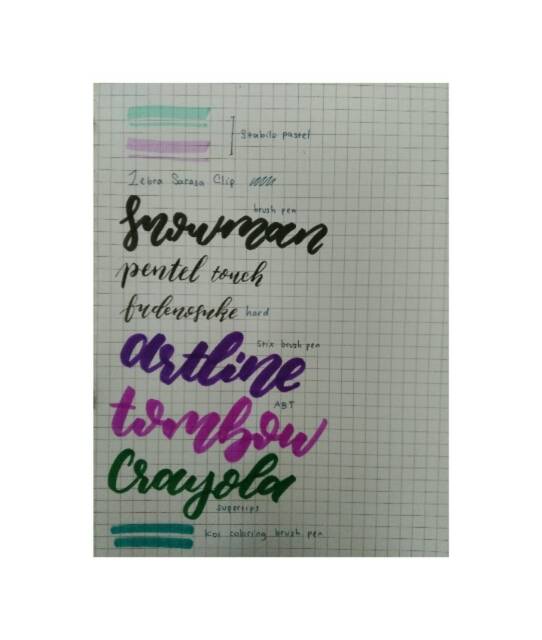 Stabilo pastel
Zebra Sarasa Clip
brush pen
Snowman
pentel touch
fudenosuke hard
Stix brush pen
artline
ABT
tombow
Crayola
supertips
Koi coloring brush pen